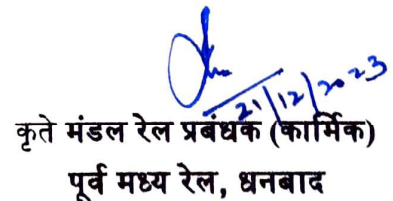 21/12/2023
कृते मंडल रेल प्रबंधक (कार्मिक)
पूर्व मध्य रेल, धनबाद